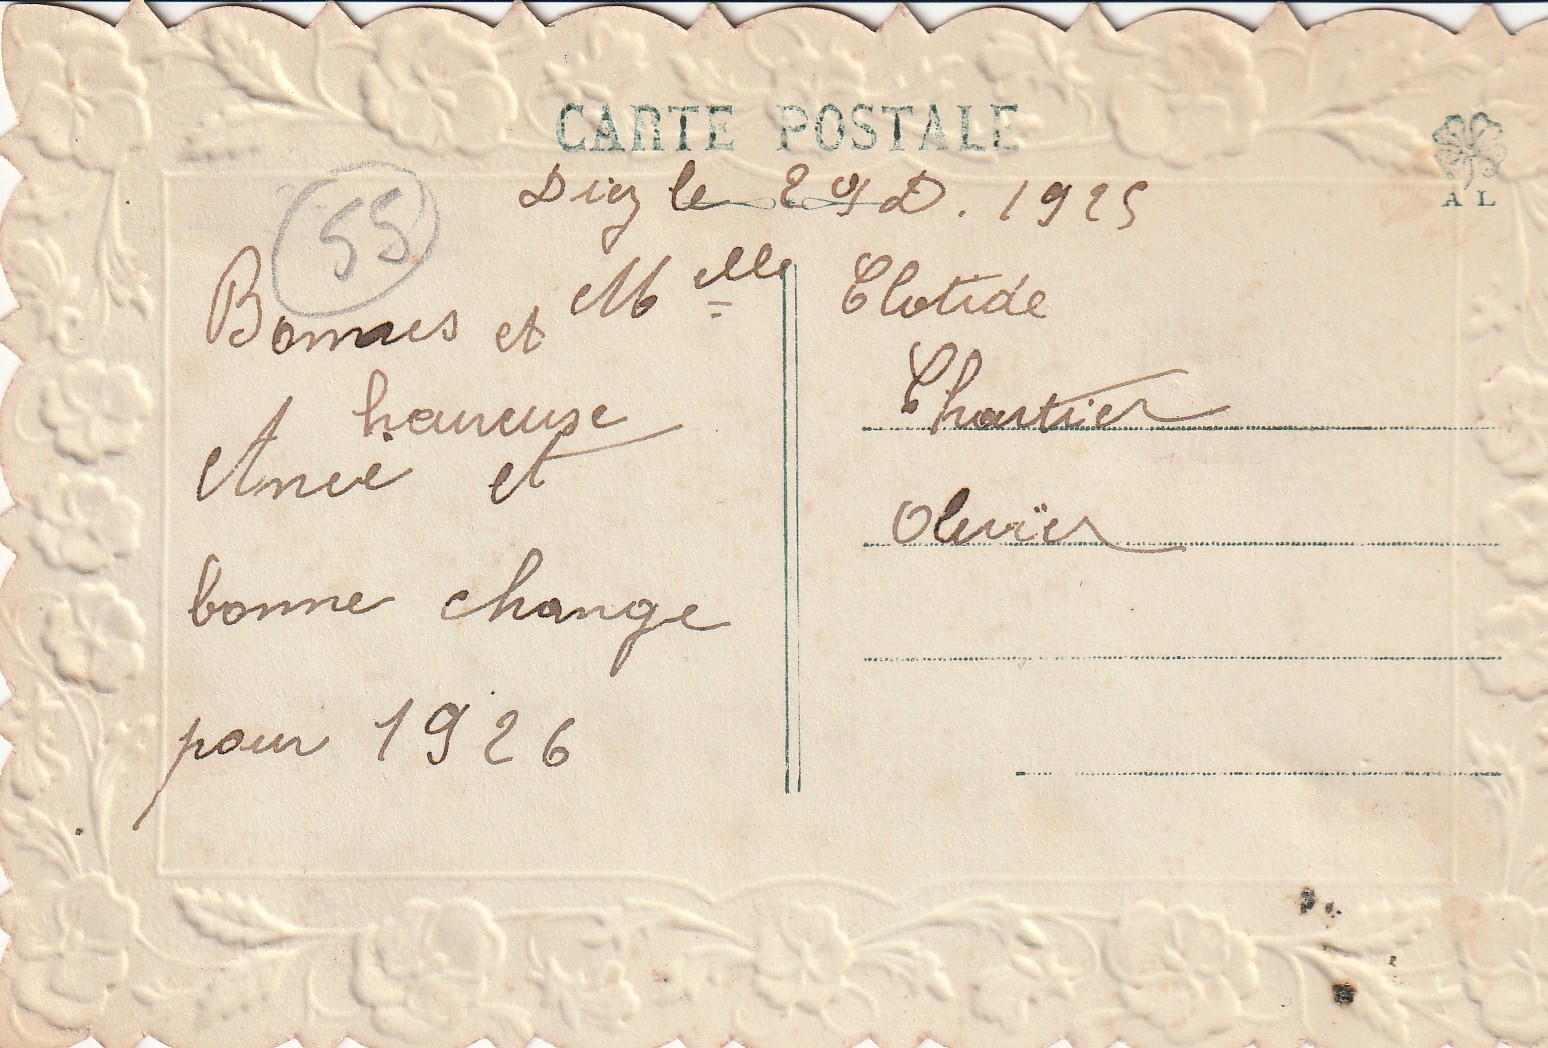 CARTE POSTALE
A L
55
le 29 D. 1925
Bonnaes et
haureuse
Anée et
bonne change
pour 1926
Melle Clotide
Chartier
Olivïer